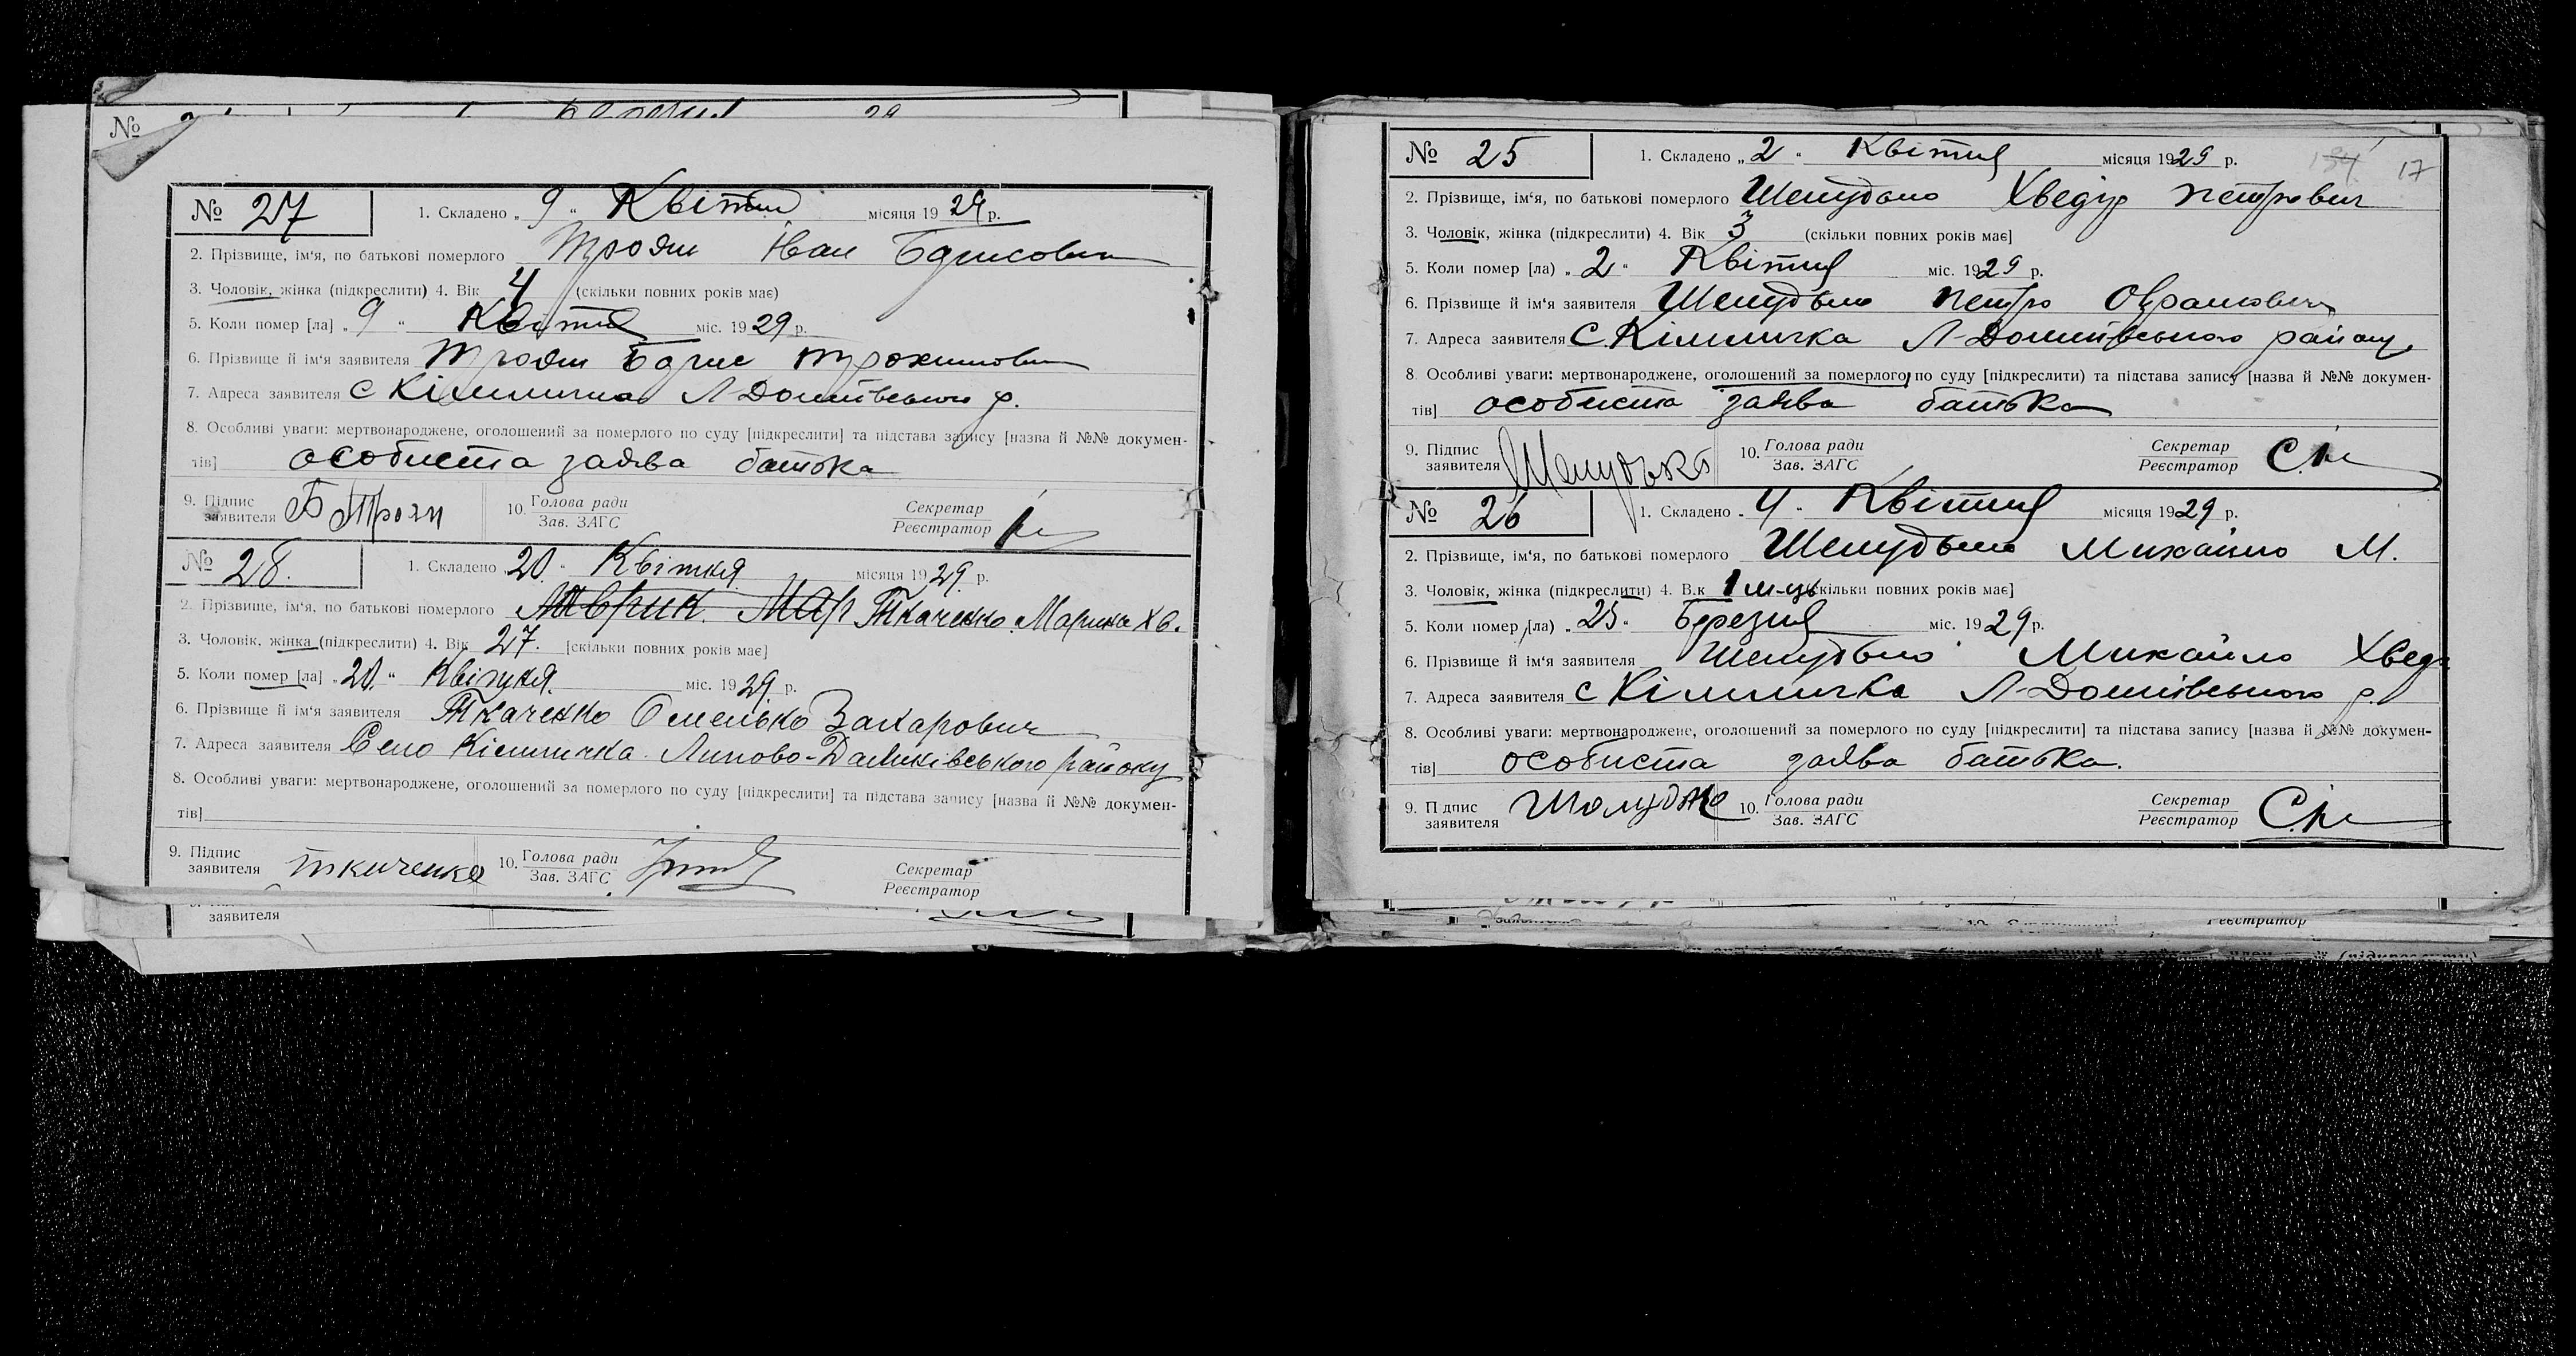 № 27 1. Складено „ 9 “ Квітня місяця 19 29 р.
2. Прізвище, ім‘я, по батькові померлого Троян Іван Борисович
3. Чоловік, жінка (підкреслити) 4. Вік 4 (скільки повних років має)
5. Коли помер [ла] „ 9 “ Квітня міс. 19 29 р.
6. Прізвище й ім‘я заявителя Троян Борис Трохимович
7. Адреса заявителя с Кімличка Л-Долинівського р.
8. Особливі уваги: мертвонароджене, оголошений за померлого по суду [підкреслити] та підстава запису [назва й №№ докумен-
тів] особиста заява батька
9. Підпис заявителя Б Троян 10. Голова ради Зав. ЗАГС Секретар Реєстратор
№ 28. 1. Складено 20. “ Квітня місяця 19 29. р.
2. Прізвище, ім‘я, по батькові померлого Ткаченко Марина Хв.
3. Чоловік, жінка (підкреслити) 4. Вік 27. [скільки повних років має]
5. Коли помер [ла] „ 20. “ Квітня. міс. 19 29. р.
6. Прізвище й ім‘я заявителя Ткаченко Омелько Захарович
7. Адреса заявителя Село Кімличка Липово-Долинівського району
8. Особливі уваги: мертвонароджене, оголошений за померлого по суду [підкреслити] та підстава запису [назва й №№ докумен-
тів]
9. Підпис заявителя ткаченко 10. Голова ради Зав. ЗАГС Секретар Реєстратор
заявителя
№ 25 1. Складено „ 2 “ Квітня місяця 1929 р. 17
2. Прізвище, ім‘я, по батькові померлого Шелудько Хведір Петрович
3. Чоловік, жінка (підкреслити) 4. Вік 3 (скільки повних років має]
5. Коли помер [ла) „ 2 “ Квітня міс. 1929 р.
6. Прізвище й ім‘я заявителя Шелудько Петро
7. Адреса заявителя С. Кімличка Л-Долинівського району
8. Особливі уваги: мертвонароджене, оголошений за померлого по суду [підкреслити) та підстава запису [назва й №№ докумен-
тів] особиста заява батька
9. Підпис заявителя Шелудько 10. Голова ради Зав. ЗАГС Секретар Реєстратор
№ 26 1. Складено „ 4 “ Квітня місяця 1929 р.
2. Прізвище, ім‘я, по батькові померлого Шелудько Михайло М.
3. Чоловік, жінка (підкреслити) 4. Вік 1 м-ць скільки повних років має]
5. Коли помер [ла) „ 25 “ Березня міс. 19 29 р.
6. Прізвище й ім‘я заявителя Шелудько Михайло Хвед
7. Адреса заявителя с Кімличка Л-Долинівського р.
8. Особливі уваги: мертвонароджене, оголошений за померлого по суду [підкреслити] та підстава запису [назва й №№ докумен-
тів] особиста заява батька.
9. Підпис заявителя Шолудко 10. Голова ради Зав. ЗАГС Секретар Реєстратор
Реєстратор